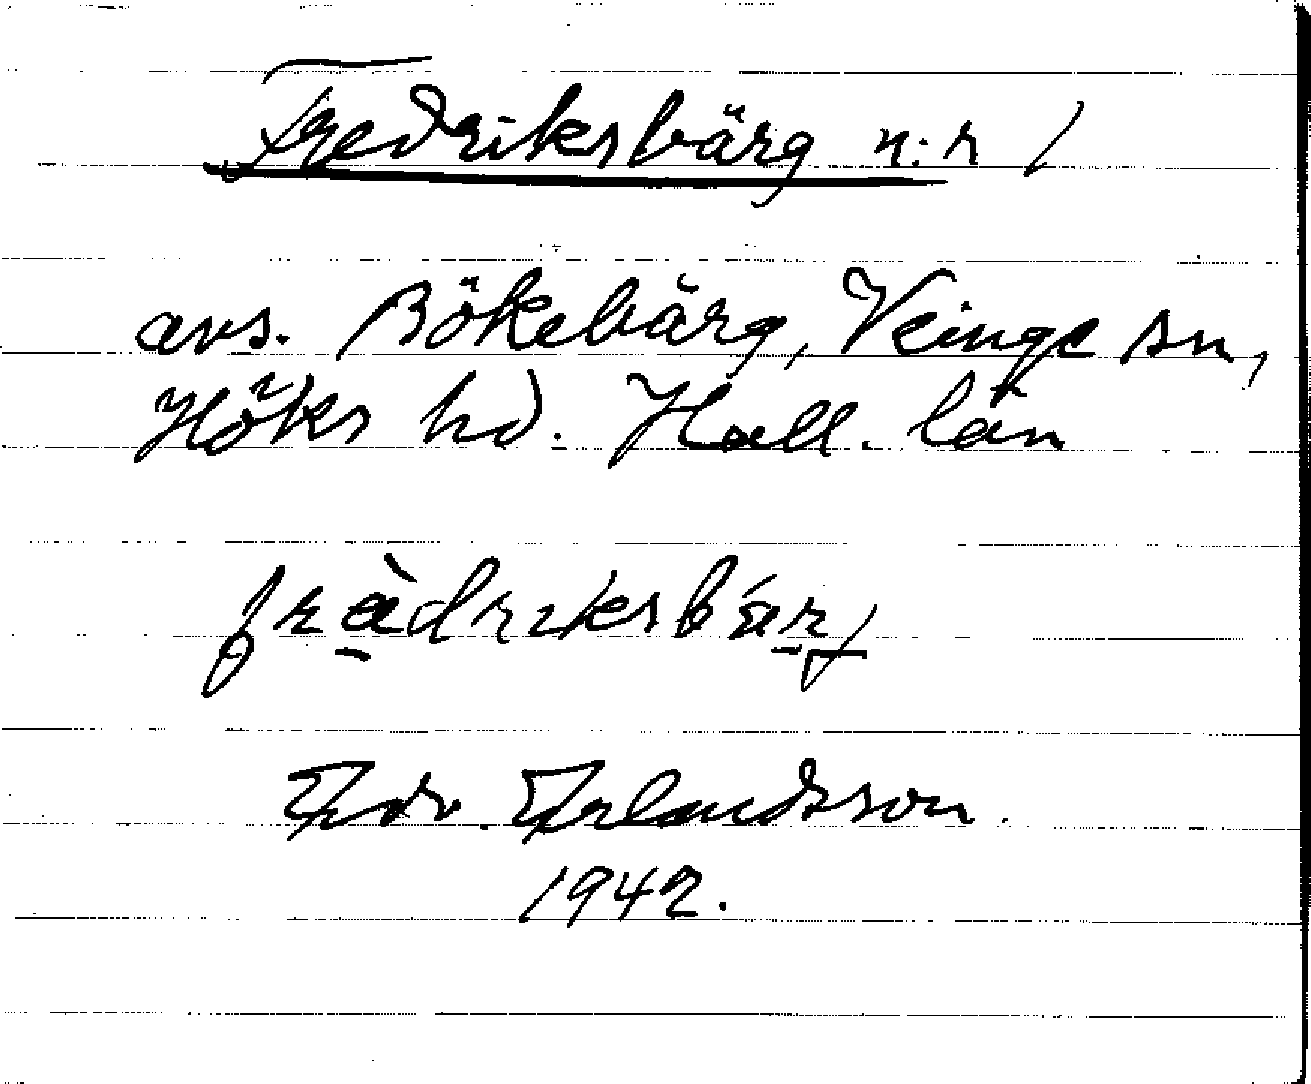 Fredriksbärg n:r 1
avs. Bökebärg, Veinge sn,
Höks hd. Hall. län
fràdriksbárj
Edv. Erlandsson.
1942.